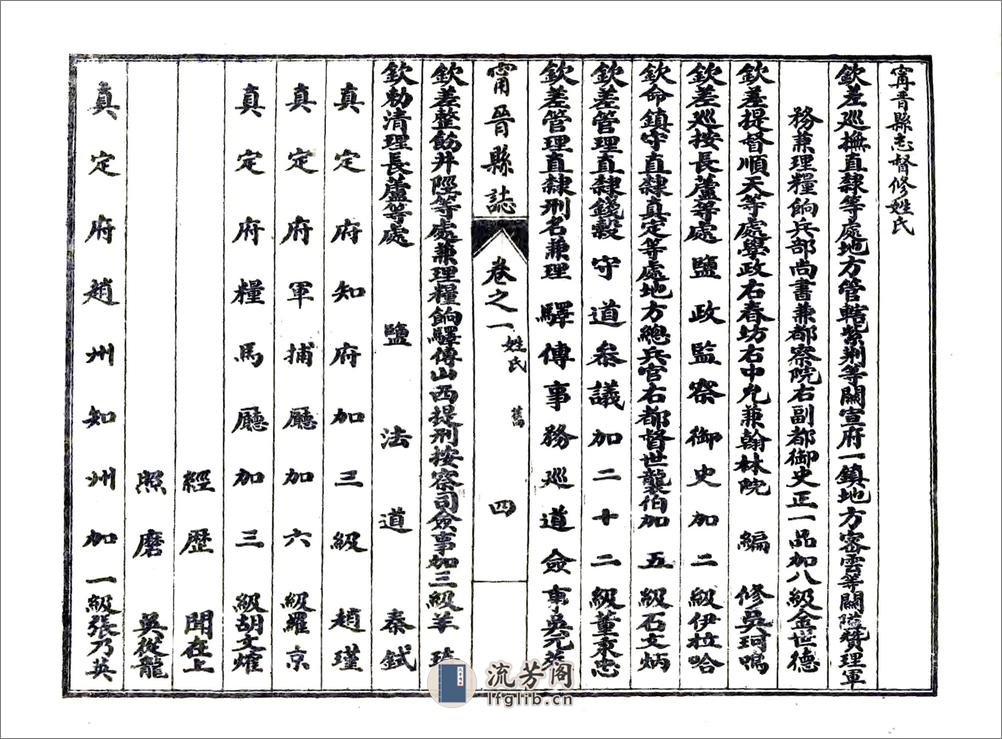 甯晋縣志督修姓氏
欽差巡撫直隸等處地方管轄紫荆等關宣府一鎮地方密雲等關隘贊理軍
務兼理糧餉兵部尚書兼都察院右副都御史正一品加八級金世德
欽差提督順天等處學政右春坊右中允兼翰林院編修吳珂鳴
欽差巡按長蘆等處鹽政監察御史加二級伊拉哈
欽命鎮守直隸真定等處地方總兵官右都督世襲伯加五級石文炳
欽差管理直隸錢穀守道叅議加二十二級董秉忠
欽差管理直隸刑名兼理驛傳事務巡道僉事吳元萊
甯晉縣誌 卷之一 姓氏 舊 四
欽差整飭井陘等處兼理糧餉驛傳山西提刑按察司僉事加三級羊琦
欽勅清理長蘆等處鹽法道秦鉽
真定府知府加三級趙瑾
真定府軍捕廳加六級羅京
真定府糧馬廳加三級胡文煃
經歷 聞在上
照磨 吳從龍
真定府趙州知州加一級張乃英
流芳阁
lfglib.cn